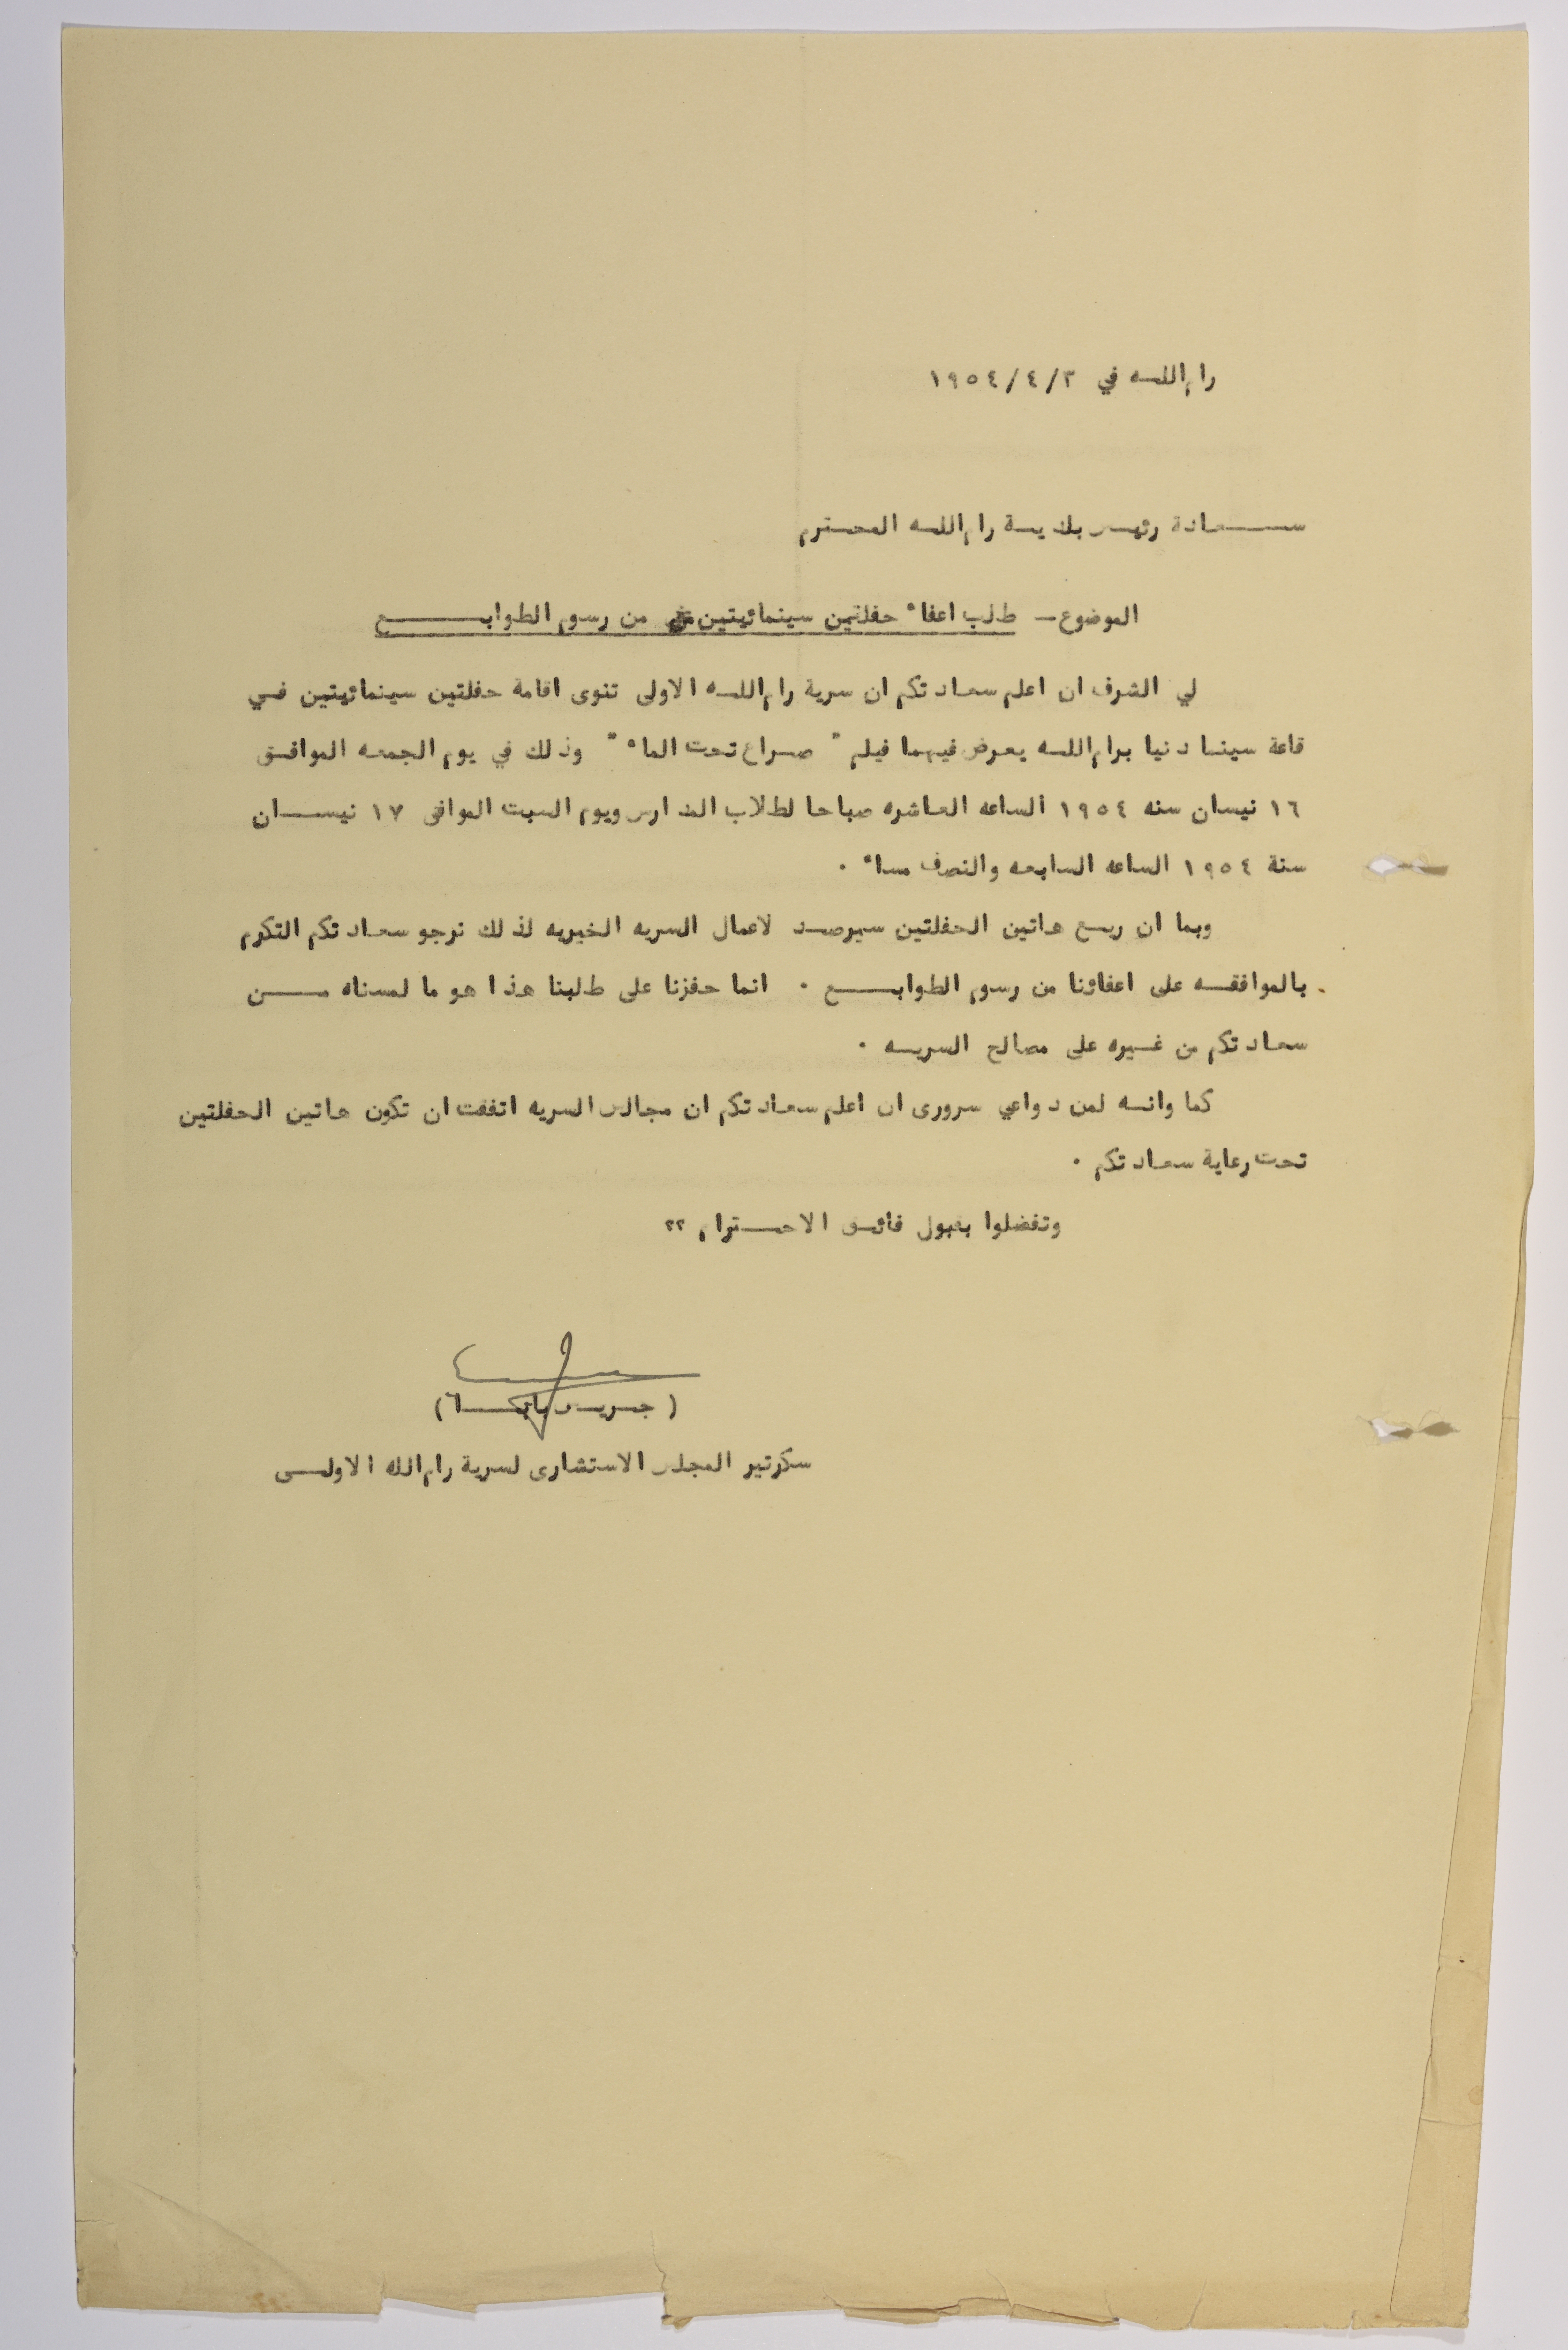 رام اللـه في ٣/٤/١٩٥٤
ســعادة رئيس بلديـة رام اللـه المحـترم
الموضوع ــ طلب اعفاء حفلتين سينمائيتين من رسوم الطوابــع
لي الشرف ان اعلم سعادتكم ان سرية رام اللـه الاولى تنوى اقامة حفلتين سينمائيتين فـي
قاعة سينما دنيا برام اللـه يعرض فيهما فيلم " صـراع تحت الماء " وذلك في يوم الجمعه الموافـق
١٦ نيسان سنه ١٩٥٤ الساعه العاشره صباحا لطلاب المدارس ويوم السبت الموافق ١٧ نيســان
سنة ١٩٥٤ الساعه السابعه والنصف مساء ٠
وبما ان ريـع هاتين الحفلتين سيرصـد لاعمال السريه الخيريه لذلك نرجو سعادتكم التكرم
بالموافقـه على اعفائنا من رسوم الطوابــع ٠ انما حفزنا على طلبنا هذا هو ما لمسناه مــن
سعادتكم من غـيره على مصالح السريـه ٠
كما وانـه لمن دواعي سرورى ان اعلم سعادتكم ان مجالس السريه اتفقت ان تكون هاتين الحفلتين
تحت رعاية سعادتكم ٠
وتفضلوا بقبول فائـق الاحــترام ٢٢
( جـريـس
سكرتير المجلس الاستشارى لسرية رام الله الاولـى